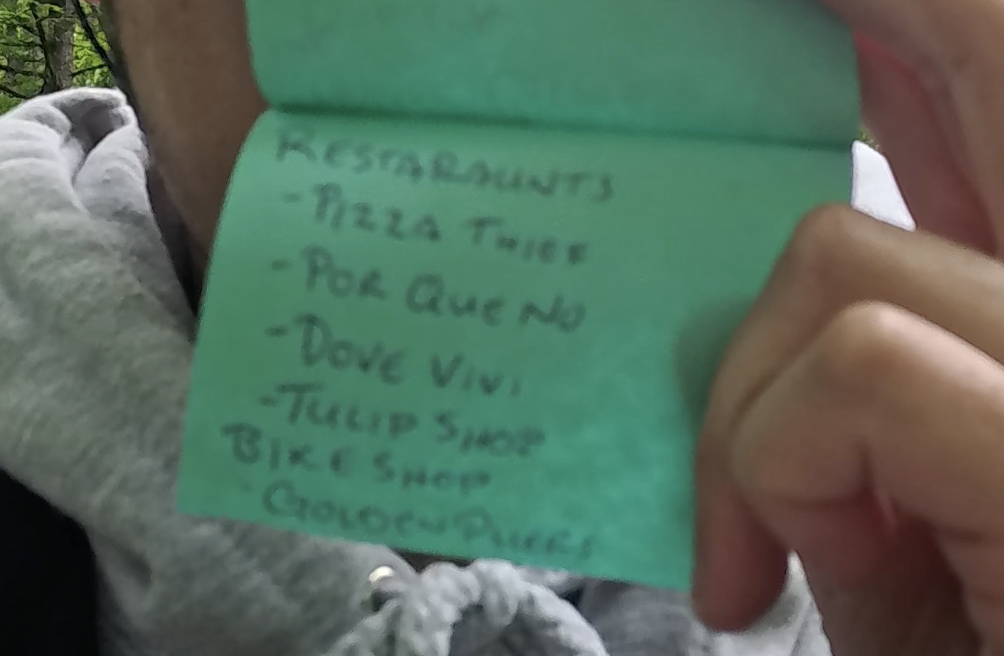 RESTARAUNTS
- PIZZA THIEF
- POR QUE NO
- DOVE VIVI
- TULIP SHOP
BIKE SHOP
- GOLDEN PLIERS